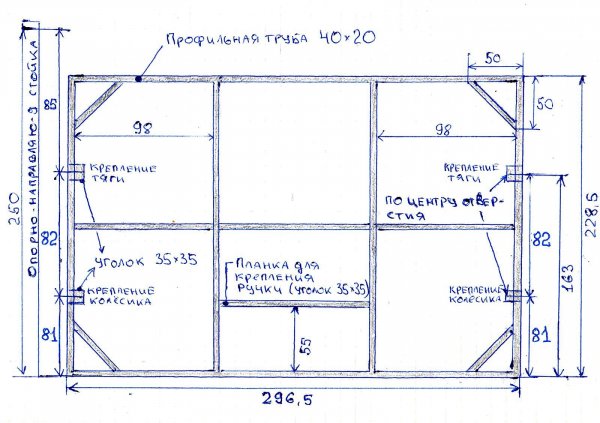 Профильная труба 40×20
50
50
Опорно-направляю-я стойка
85
98
98
крепление
тяги
крепление
тяги
по центру отвер-
стия
250
82
уголок 35×35
Планка для
крепления
ручки (уголок 35×35)
крепление
колёсика
крепление
колёсика
82
163
228,5
81
55
81
296,5